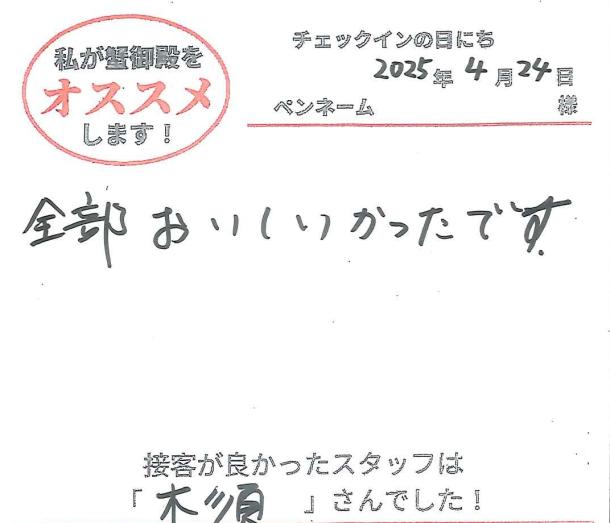 私が蟹御殿を
オススメ
します！
チェックインの日にち
2025年 4月24日
ペンネーム 様
全部おいしいかったです.
接客が良かったスタッフは
「木須」さんでした！